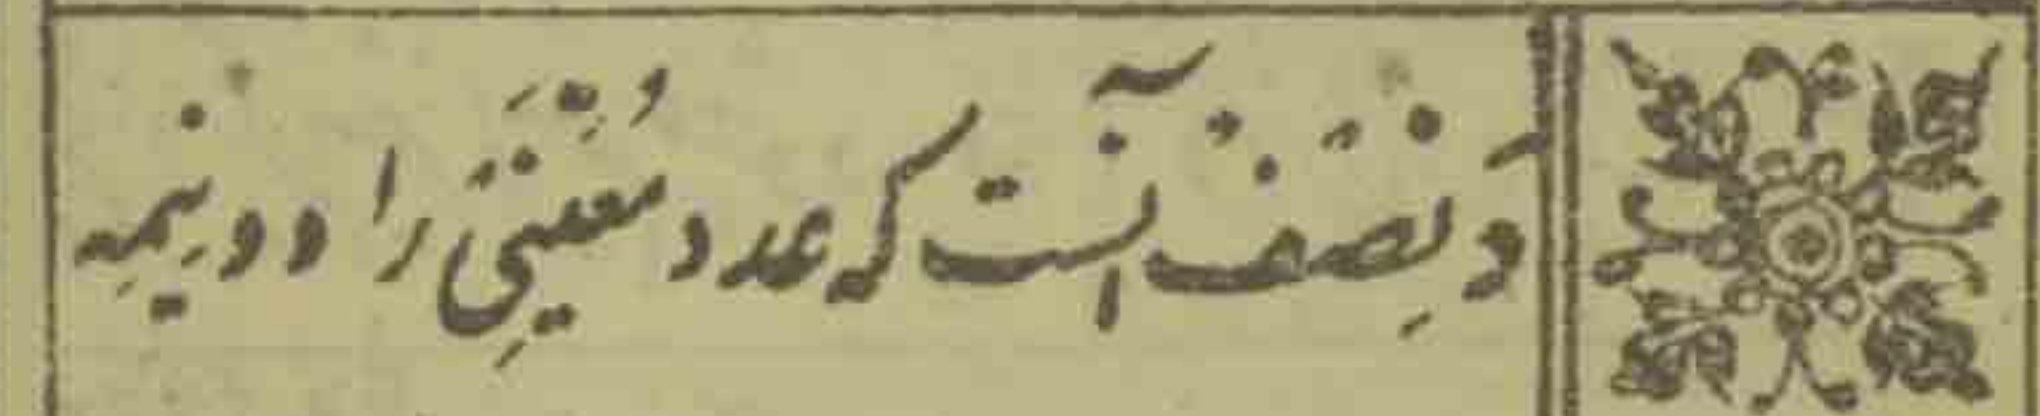 وَ نِصْفْ آنست که عدد مُعَیَّنِی را دو نیمه